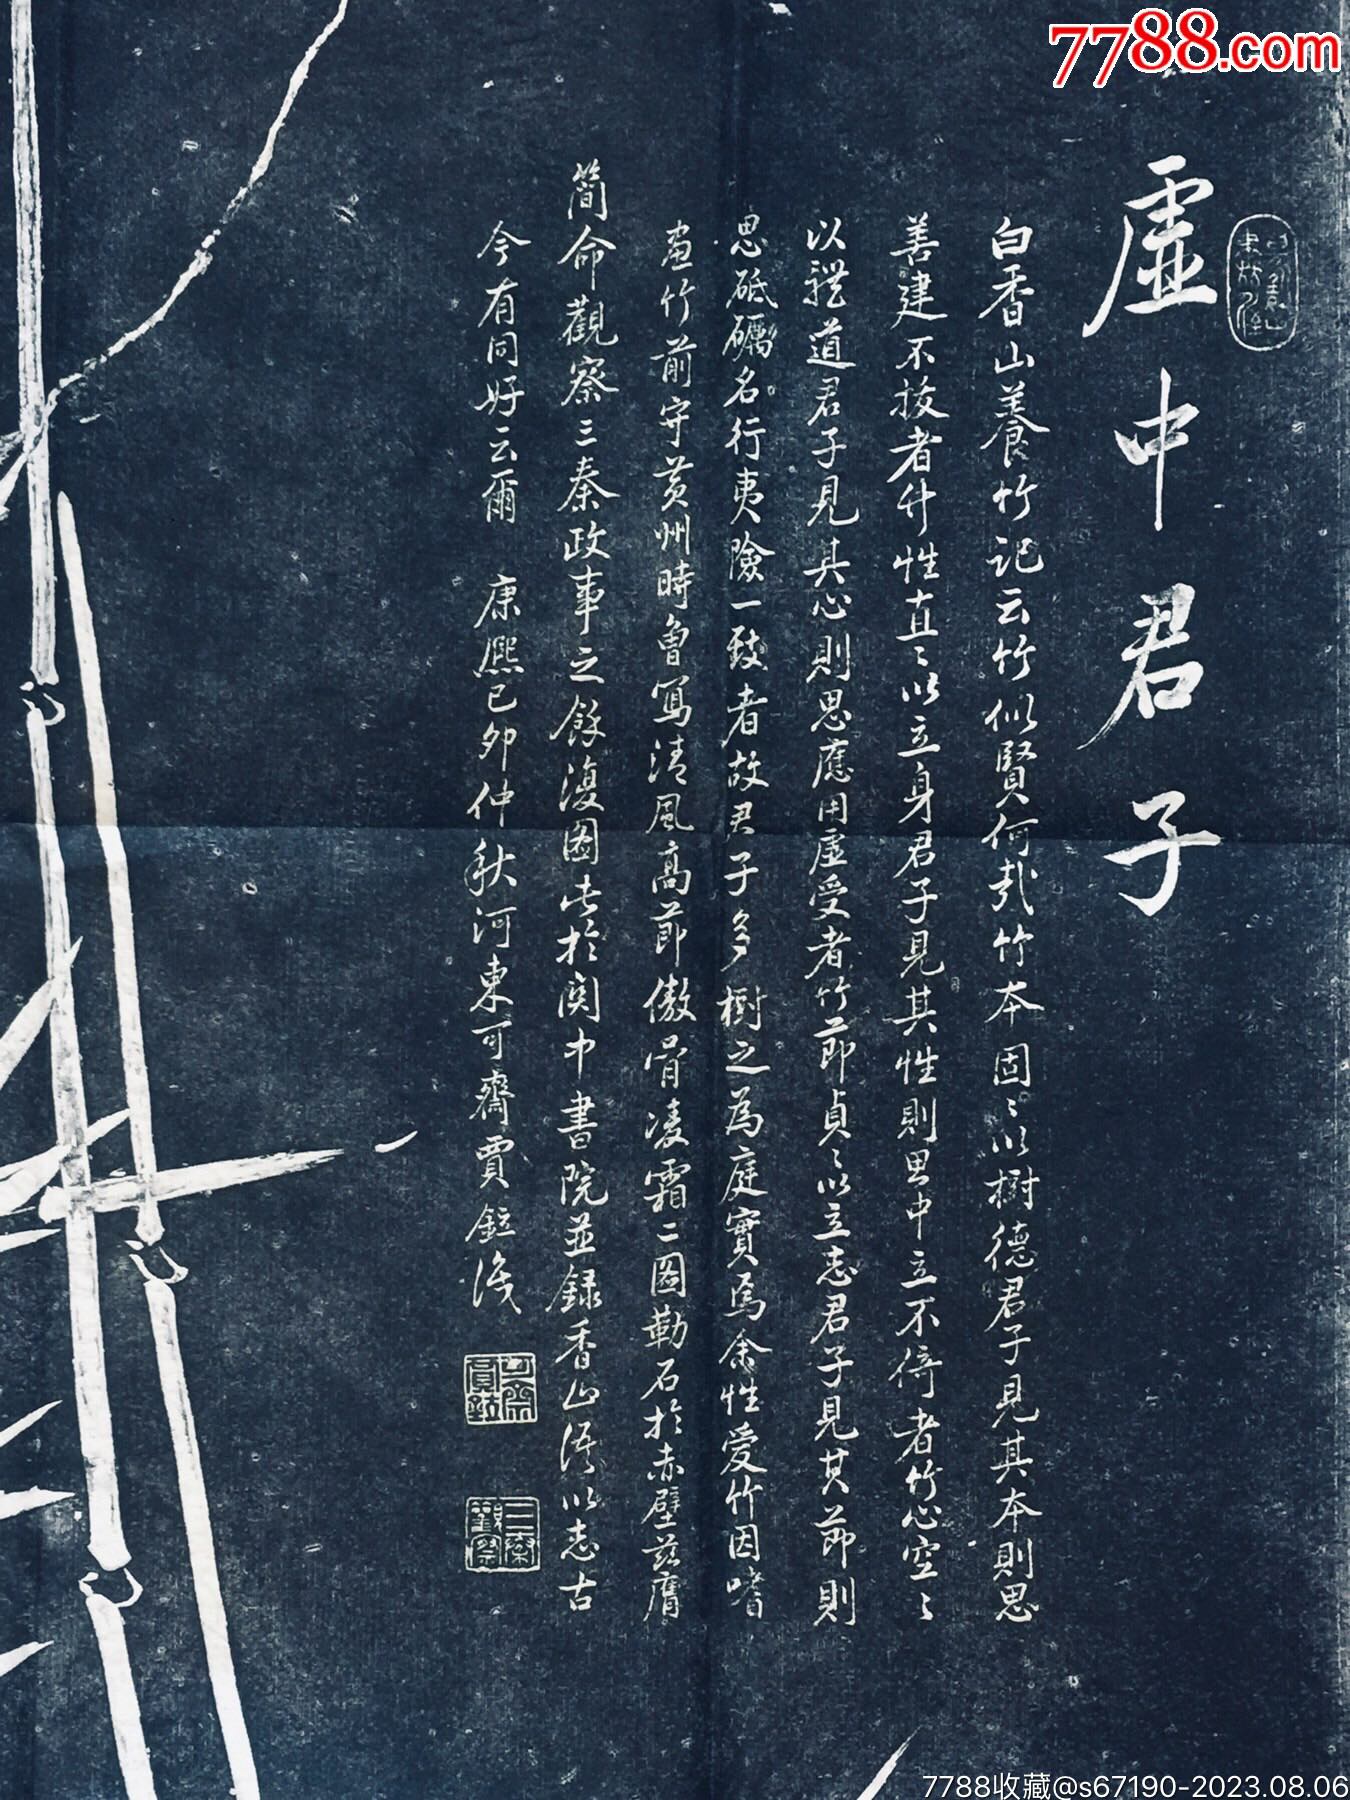 7788.com
虛中君子
白香山養竹記云竹似賢何哉竹本固〻以樹德君子見其本則思
善建不拔者竹性直〻以立身君子見其性則思中立不倚者竹心空〻
以體道君子見其心則思應用虛受者竹節貞〻以立志君子見其節則
思砥礪名行夷險一致者故君子多樹之為庭實焉余性愛竹因嗜
畫竹前守黃州時曾寫清風高節傲骨凌霜二圖勒石於赤壁茲膺
簡命觀察三秦政事之餘復圖此於関中書院並録香山語以志古
今有同好云爾 康熙己卯仲秋河東可齋賈鉝識
可齋賈鉝
三秦觀察
7788收藏@s67190-2023.08.06